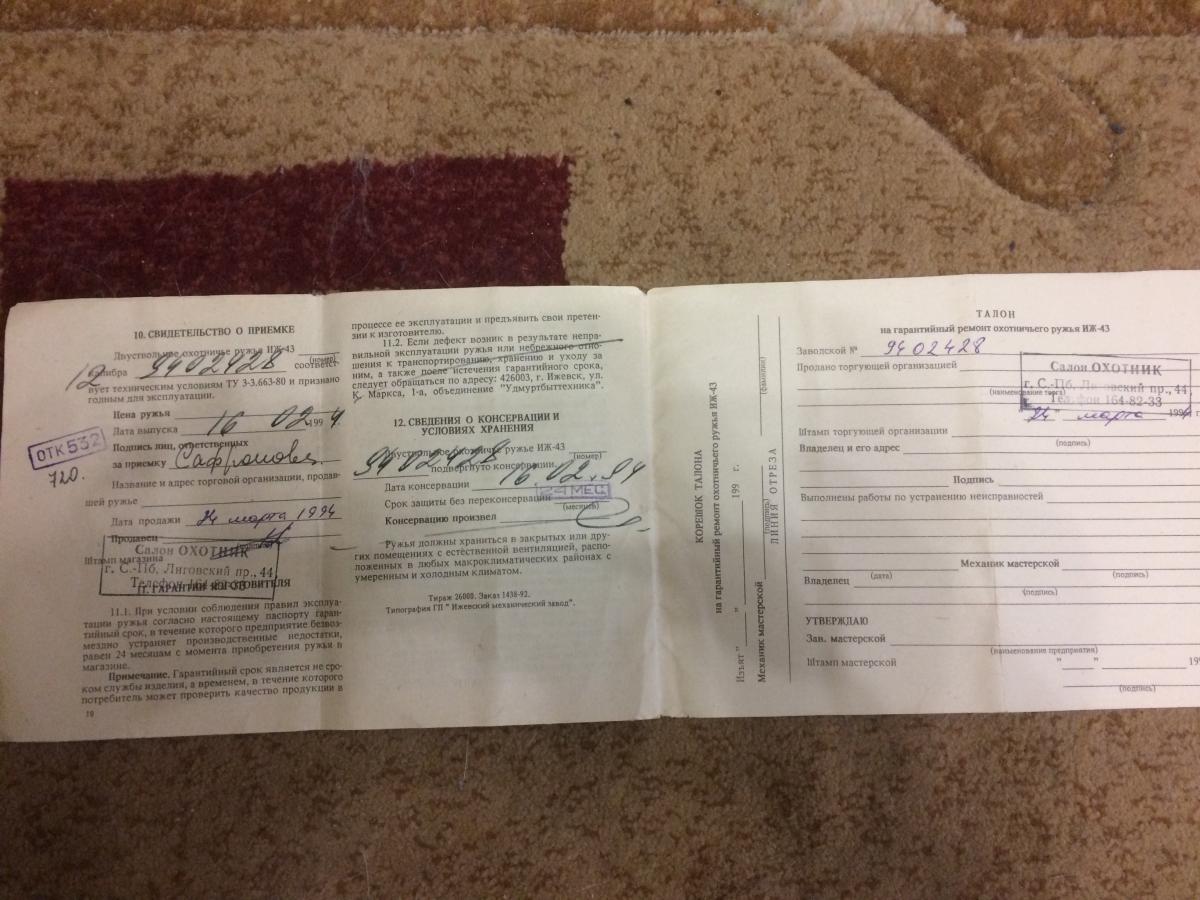 10. СВИДЕТЕЛЬСТВО О ПРИЕМКЕ
Двуствольное охотничье ружье ИЖ-43
(номер)
калибра 12 9402428 соответст-
вует техническим условиям ТУ 3-3.663-80 и признано
годным для эксплуатации.
Цена ружья
Дата выпуска 16 02 1994
Подпись лиц, ответственных
за приемку Сафронова
ОТК 532
720.
Название и адрес торговой организации, продав-
шей ружье
Дата продажи 24 марта 1994
Продавец
Штамп магазина
Салон ОХОТНИК
г. С.-Пб, Лиговский пр., 44
Телефон 164-82-33
11. ГАРАНТИИ ИЗГОТОВИТЕЛЯ
11.1. При условии соблюдения правил эксплуа-
тации ружья согласно настоящему паспорту гаран-
тийный срок, в течение которого предприятие безвоз-
мездно устраняет производственные недостатки,
равен 24 месяцам с момента приобретения ружья в
магазине.
Примечание. Гарантийный срок является не сро-
ком службы изделия, а временем, в течение которого
потребитель может проверить качество продукции в
10
процессе ее эксплуатации и предъявить свои претен-
зии к изготовителю.
11.2. Если дефект возник в результате непра-
вильной эксплуатации ружья или небрежного отно-
шения к транспортированию, хранению и уходу за
ним, а также после истечения гарантийного срока,
следует обращаться по адресу: 426003, г. Ижевск, ул.
К. Маркса, 1-а, объединение "Удмуртбыттехника".
12. СВЕДЕНИЯ О КОНСЕРВАЦИИ И
УСЛОВИЯХ ХРАНЕНИЯ
Двуствольное охотничье ружье ИЖ-43
9402428 подвергнуто консервации.
(номер)
Дата консервации 16.02.94
Срок защиты без переконсервации 24 МЕС
(месяцев)
Консервацию произвел
Ружья должны храниться в закрытых или дру-
гих помещениях с естественной вентиляцией, распо-
ложенных в любых макроклиматических районах с
умеренным и холодным климатом.
Тираж 26000. Заказ 1438-92.
Типография ГП "Ижевский механический завод".
КОРЕШОК ТАЛОНА
на гарантийный ремонт охотничьего ружья ИЖ-43
Изъят " " 199 г.
Механик мастерской
(подпись)
(фамилия)
ЛИНИЯ ОТРЕЗА
ТАЛОН
на гарантийный ремонт охотничьего ружья ИЖ-43
Заводской № 9402428
Продано торгующей организацией
(наименование торга)
Салон ОХОТНИК
г. С.-Пб, Лиговский пр., 44
Телефон 164-82-33
"24" марта 199
Штамп торгующей организации
(подпись)
Владелец и его адрес
Подпись
Выполнены работы по устранению неисправностей
Механик мастерской
(дата)
(подпись)
Владелец
(подпись)
УТВЕРЖДАЮ
Зав. мастерской
(наименование предприятия)
Штамп мастерской " " 199
(подпись)